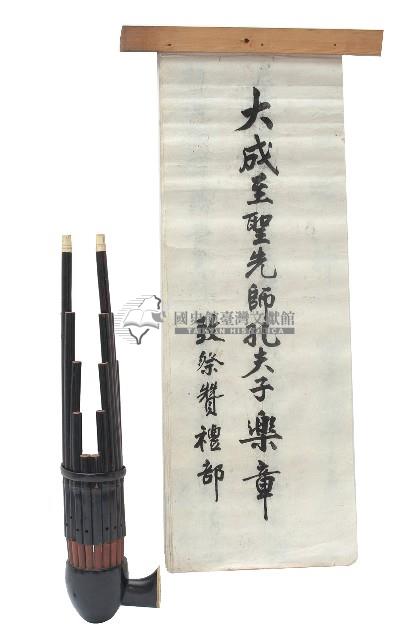 大成至聖先師孔夫子樂章
致祭贊禮部
國史館臺灣文獻館
TAIWAN HISTORICA